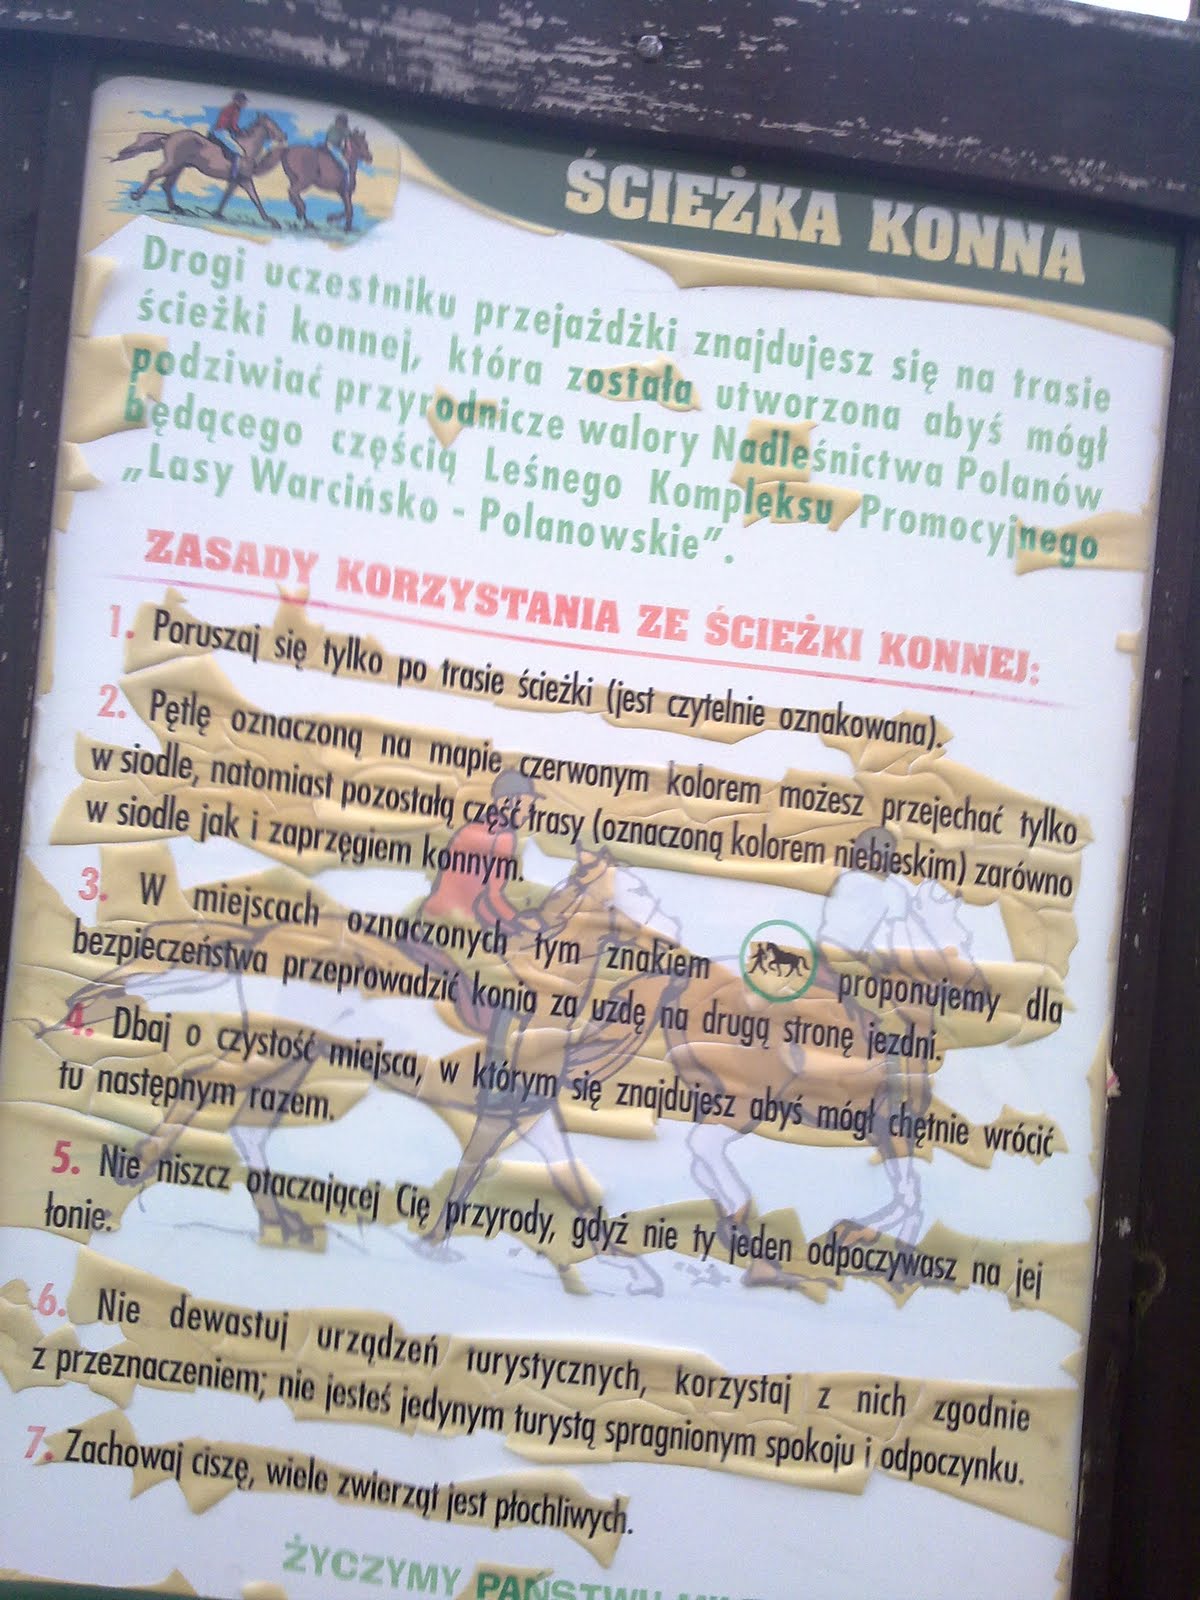 ŚCIEŻKA KONNA
Drogi uczestniku przejażdżki znajdujesz się na trasie
ścieżki konnej, która została utworzona abyś mógł
podziwiać przyrodnicze walory Nadleśnictwa Polanów
będącego częścią Leśnego Kompleksu Promocyjnego
„Lasy Warcińsko - Polanowskie”.
ZASADY KORZYSTANIA ZE ŚCIEŻKI KONNEJ:
1. Poruszaj się tylko po trasie ścieżki (jest czytelnie oznakowana).
2. Pętlę oznaczoną na mapie czerwonym kolorem możesz przejechać tylko
w siodle, natomiast pozostałą część trasy (oznaczoną kolorem niebieskim) zarówno
w siodle jak i zaprzęgiem konnym.
3. W miejscach oznaczonych tym znakiem proponujemy dla
bezpieczeństwa przeprowadzić konia za uzdę na drugą stronę jezdni.
4. Dbaj o czystość miejsca, w którym się znajdujesz abyś mógł chętnie wrócić
tu następnym razem.
5. Nie niszcz otaczającej Cię przyrody, gdyż nie ty jeden odpoczywasz na jej
łonie.
6. Nie dewastuj urządzeń turystycznych, korzystaj z nich zgodnie
z przeznaczeniem; nie jesteś jedynym turystą spragnionym spokoju i odpoczynku.
7. Zachowaj ciszę, wiele zwierząt jest płochliwych.
ŻYCZYMY PAŃSTWU